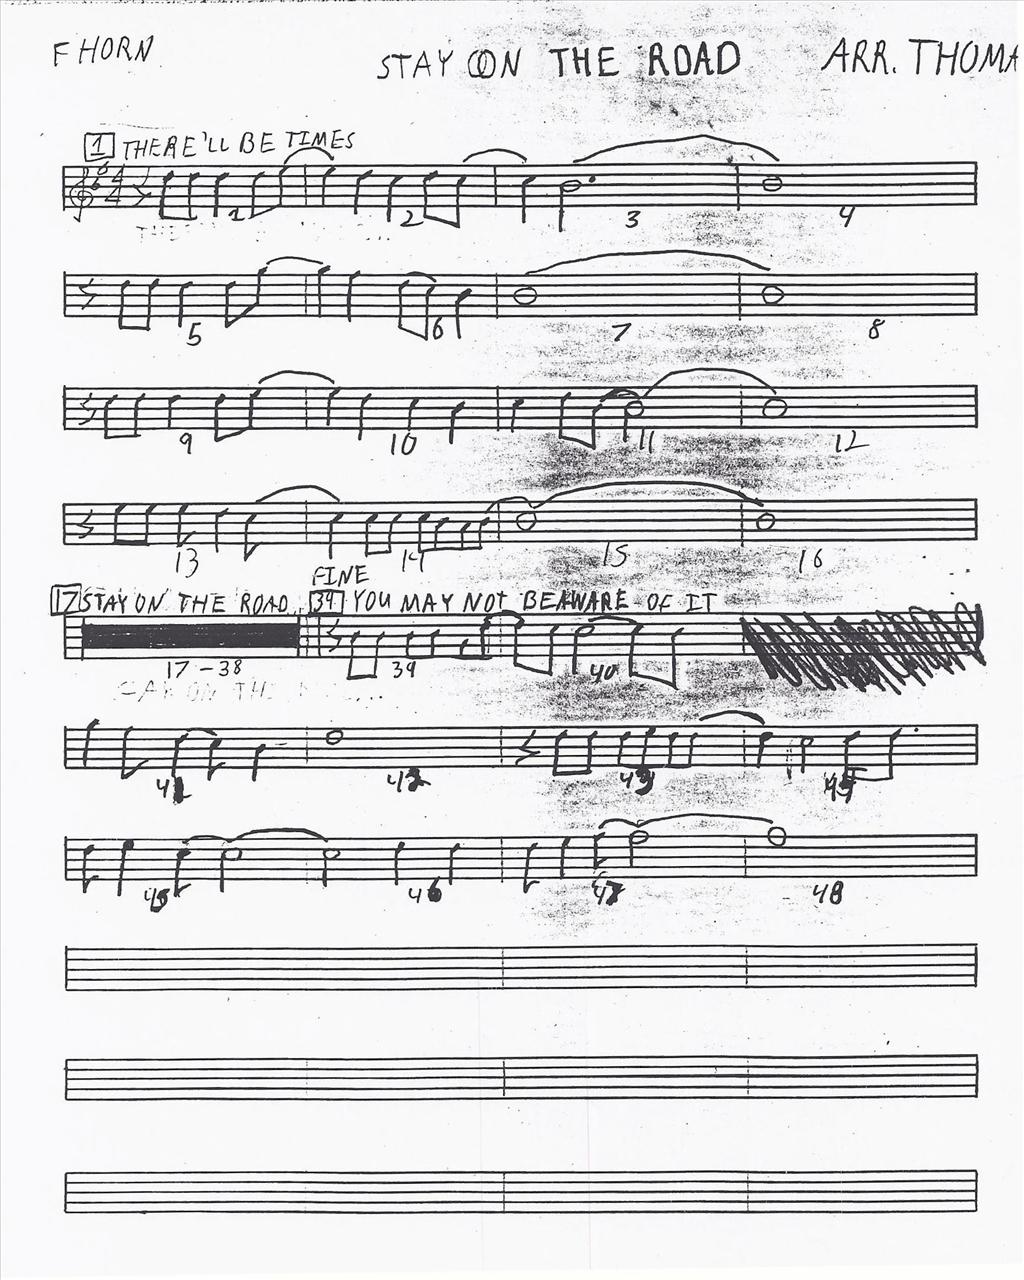 F HORN
STAY ON THE ROAD
ARR. THOMA
1 THERE'LL BE TIMES
4 4
1 2 3 4
5 6 7 8
9 10 11 12
13 14 15 16
FINE
17 STAY ON THE ROAD 39 YOU MAY NOT BE AWARE OF IT
17-38 39 40
41 42 43
45 46 47 48